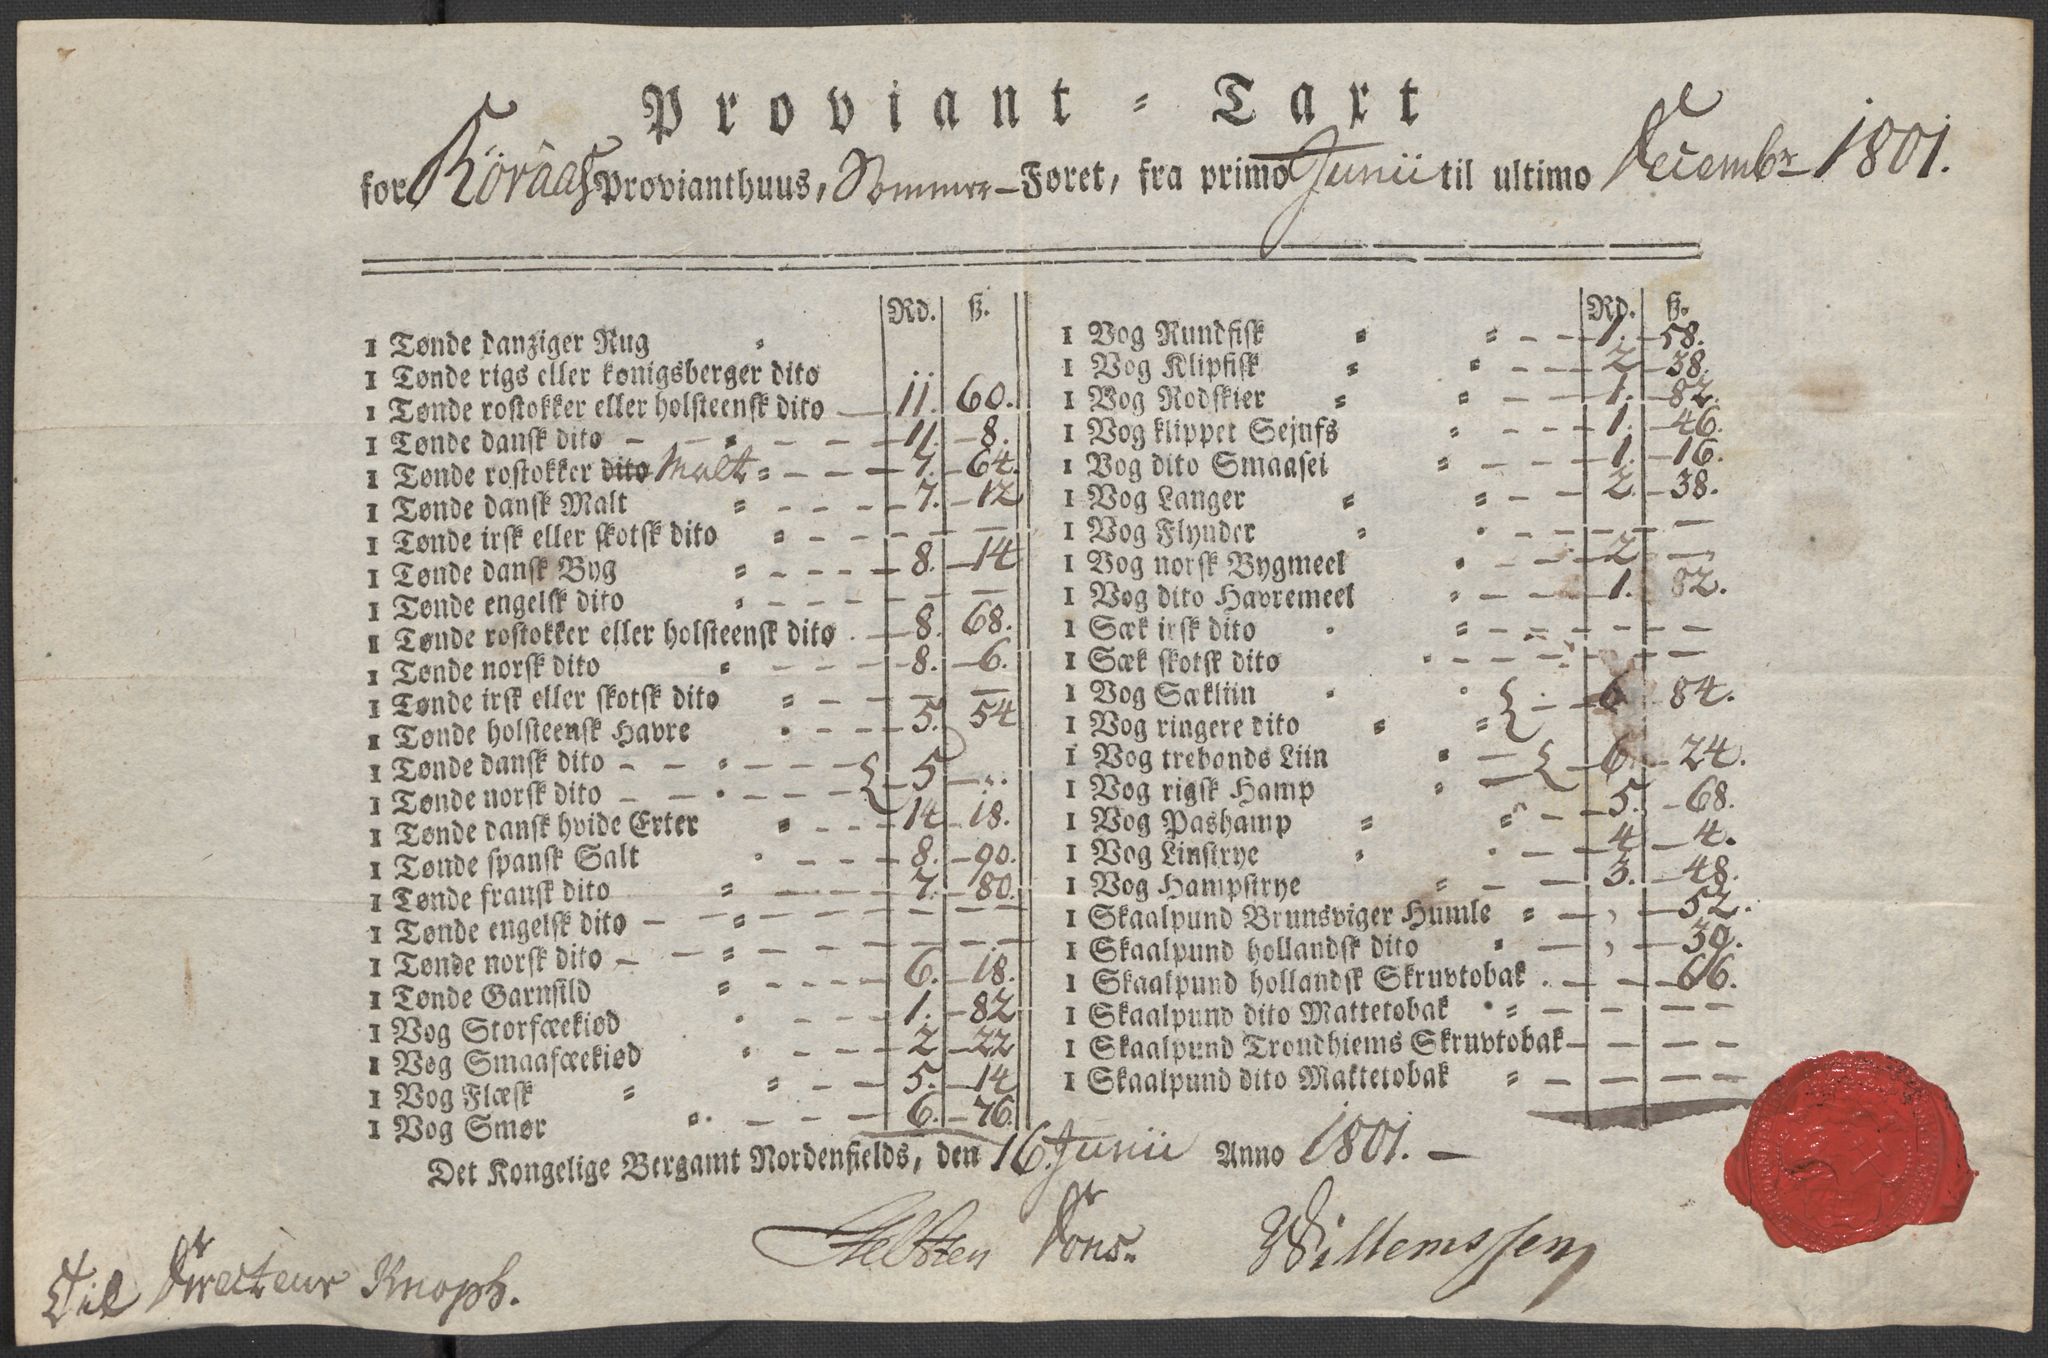 Proviant - Taxt
for Röraas Provianthuus, Sommer-Føret, fra primo Junii til ultimo Decembr 1801.
Rd. ß.
1 Tønde danziger Rug
1 Tønde rigs eller kønigsberger dito
1 Tønde rostokker eller holsteensk dito — 11. 60.
1 Tønde dansk dito — 11. — 8.
1 Tønde rostokker dito Malt — 7. — 64.
1 Tønde dansk Malt — 7. — 12
1 Tønde irsk eller skotsk dito — —
1 Tønde dansk Byg — 8. — 14
1 Tønde engelsk dito — —
1 Tønde rostokker eller holsteensk dito — 8. 68.
1 Tønde norsk dito — 8. — 6.
1 Tønde irsk eller skotsk dito — —
1 Tønde holsteensk Havre — 5. 54
1 Tønde dansk dito — {
1 Tønde norsk dito — { 5 —
1 Tønde dansk hvide Erter — 14 — 18.
1 Tønde spansk Salt — 8. — 90.
1 Tønde fransk dito — 7. — 80.
1 Tønde engelsk dito — —
1 Tønde norsk dito — —
1 Tønde Garnsild — 6. — 18.
1 Vog Storfæekiød — 1. — 82
1 Vog Smaafæekiød — 2 — 22
1 Vog Flæsk — 5. — 14
1 Vog Smør — 6. — 76.
Rd. ß.
1 Vog Rundfisk — 1. — 58.
1 Vog Klipfisk — 2 — 38.
1 Vog Rodskier — 1. — 82.
1 Vog klippet Sejufs — 1. — 46.
1 Vog dito Smaasei — 1. — 16.
1 Vog Langer — 2. — 38.
1 Vog Flynder — —
1 Vog norsk Bygmeel — 2 —
1 Vog dito Havremeel — 1. 82.
1 Sæk irsk dito — —
1 Sæk skotsk dito — —
1 Vog Sækliin { — 6 84.
1 Vog ringere dito {
1 Vog trebands Liin — { 6. — 24.
1 Vog rigsk Hamp — {
1 Vog Pashamp — 5. — 68.
1 Vog Linstrye — 4 — 4.
1 Vog Hampstrye — 3. — 48.
1 Skaalpund Brunsviger Humle — , — 52.
1 Skaalpund hollandsk dito — , — 39.
1 Skaalpund hollandsk Skruvtobak — — 66.
1 Skaalpund dito Mattetobak — —
1 Skaalpund Trondhiems Skruvtobak — —
1 Skaalpund dito Mattetobak — —
Det Kongelige Bergamt Nordenfields, den 16 Junii Anno 1801. —
Dons. Willemssen
Til Hr Directeur Knoph.